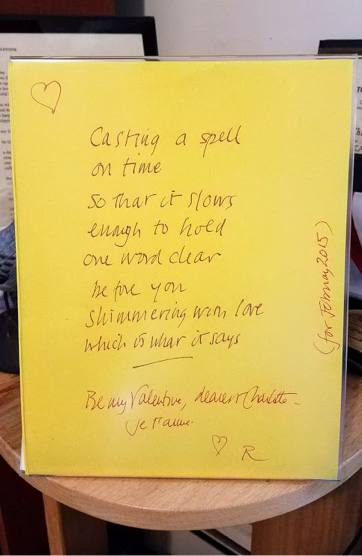 Casting a spell
on time
so that it slows
enough to hold
one word clear
before you
shimmering with love
which is what it says
Be my Valentine, dearest Charlotte –
je t'aime.
R
(for February 2015)